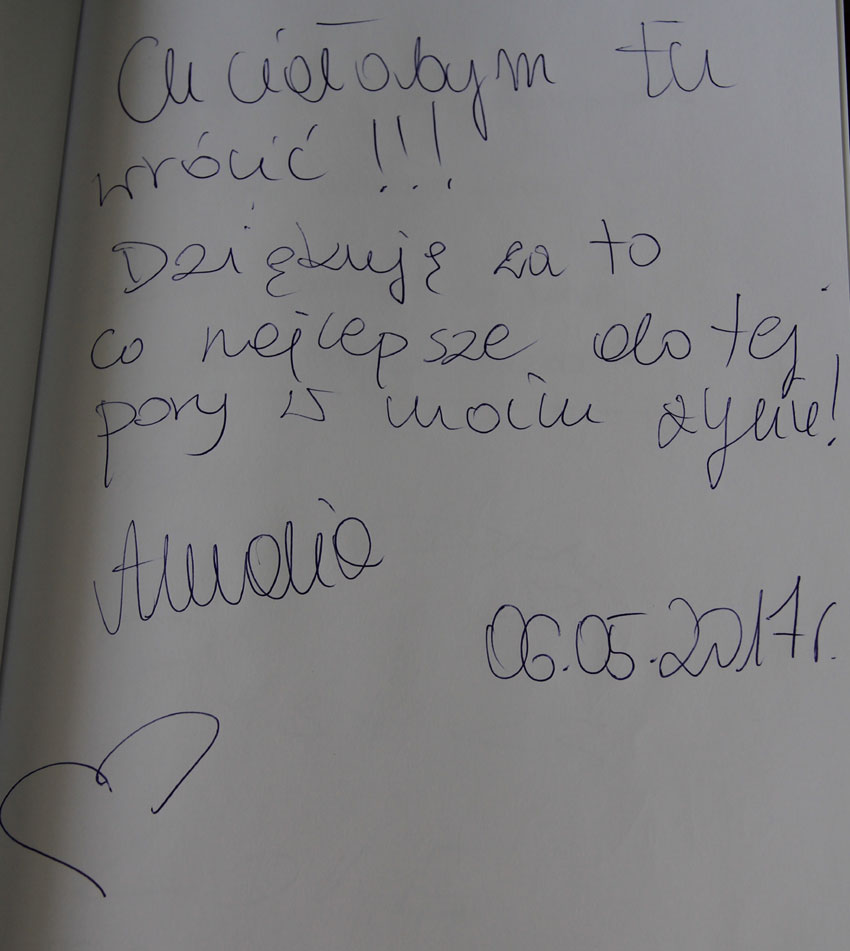 Chciałabym tu
wrócić !!!
Dziękuję za to
co nejlepsze do tej
pory w moim życiu!
06.05.2017r.